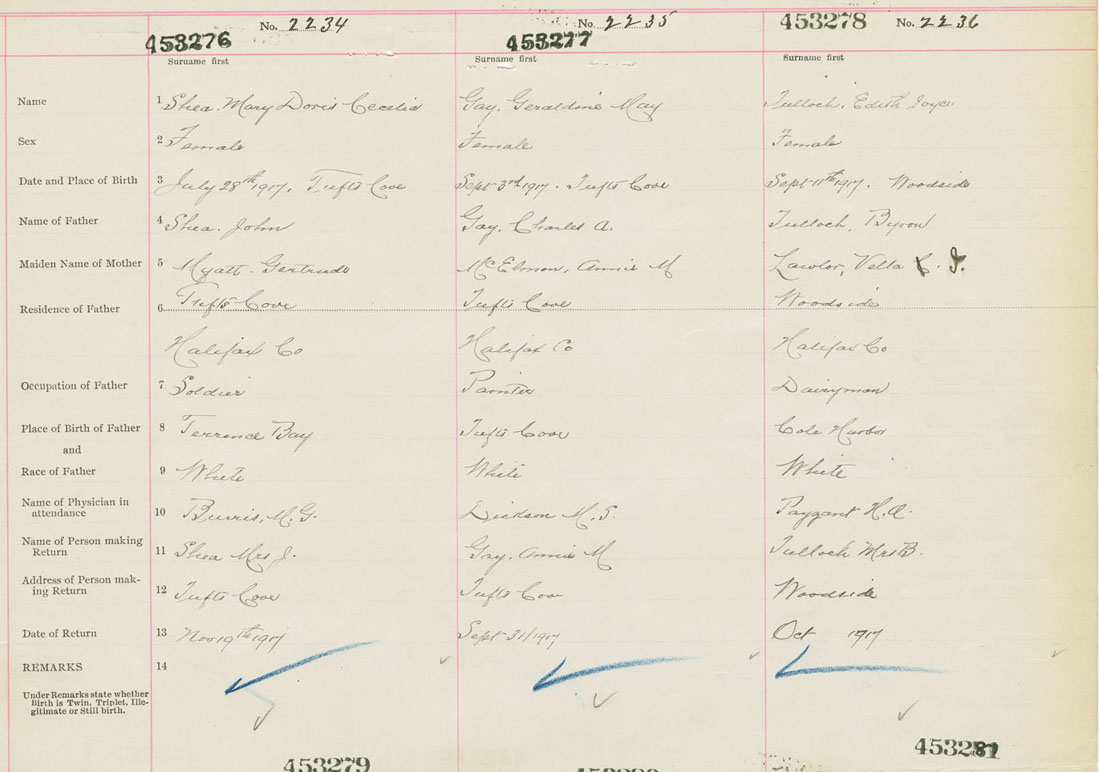 No. 2234 No. 2235 453278 No. 2236
453276 453277
Surname first Surname first Surname first
Name 1 Shea. Mary Doris Cecelia Gay, Geraldine May Tulloch, Edith Joyce
Sex 2 Female Female Female
Date and Place of Birth 3 July 28th 1917, Tufts Cove Sept 3rd 1917. Tufts Cove Sept 11th 1917. Woodside
Name of Father 4 Shea. John Gay, Charles A. Tulloch, Byron
Maiden Name of Mother 5 Myatt. Gertrude McElmon, Annie M Lawlor, Vella J.
Residence of Father 6 Tufts Cove Tufts Cove Woodside
Halifax Co Halifax Co Halifax Co
Occupation of Father 7 Soldier Painter Dairyman
Place of Birth of Father 8 Terrence Bay Tufts Cove Cole Harbor
and
Race of Father 9 White White White
Name of Physician in
attendance 10 Burris, M.G. Dickson M.S. Payzant H.A.
Name of Person making
Return 11 Shea Mrs J. Gay, Annie M Tulloch Mrs B.
Address of Person mak-
ing Return 12 Tufts Cove Tufts Cove Woodside
Date of Return 13 Nov 19th 1917 Sept 31/1917 Oct 1917
REMARKS 14
Under Remarks state whether
Birth is Twin, Triplet, Ille-
gitimate or Still birth.
453281
453279